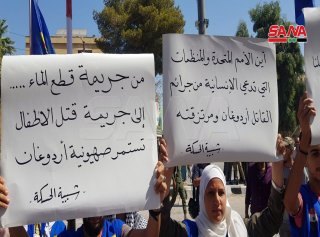 SANA
من جريمة قطع الماء .....
إلى جريمة قتل الاطفال
تستمر صهيونية أردوغان
شبيبة الحسكة
اين الأمم المتحدة والمنظمات
التي تدعي الانسانية من جرائم
القاتل أردوغان ومرتزقته
شبيبة الحسكة